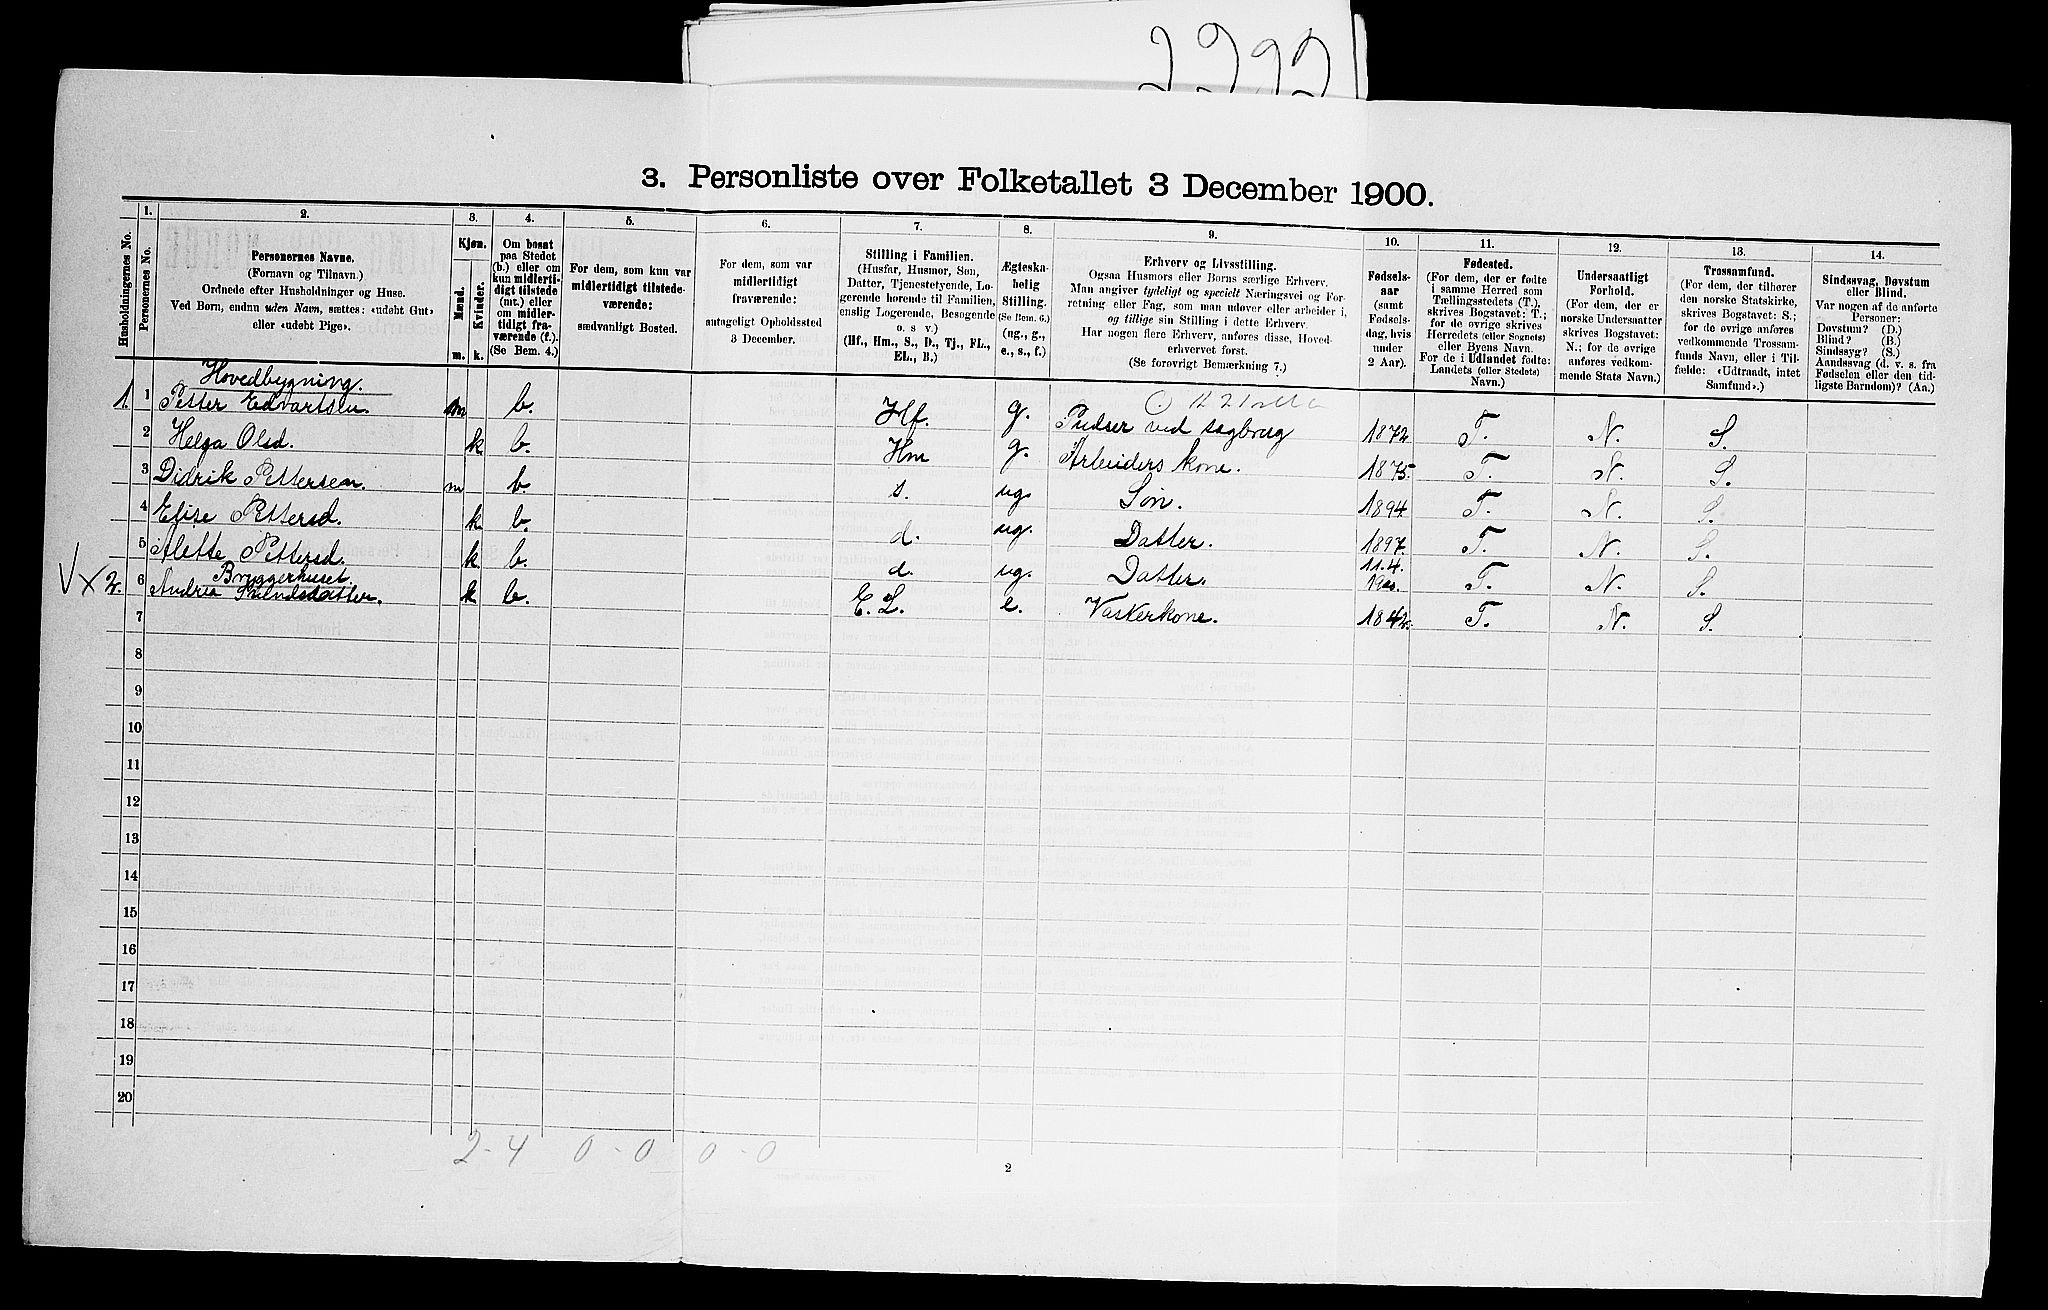 2292
3. Personliste over Folketallet 3 December 1900.
Husholdningernes No.
1.
Personernes No.
2.
Personernes Navne.
(Fornavn og Tilnavn.)
Ordnede efter Husholdninger og Huse.
Ved Børn, endnu uden Navn, sættes: «udøbt Gut»
eller «udøbt Pige».
3.
Kjøn.
Mænd.
Kvinder.
m.
k.
4.
Om bosat
paa Stedet
(b.) eller om
kun midlerti-
digt tilstede
(mt.) eller
om midler-
tidigt fra-
værende (f.).
(Se Bem. 4.)
5.
For dem, som kun var
midlertidigt tilstede-
værende:
sædvanligt Bosted.
6.
For dem, som var
midlertidigt
fraværende:
antageligt Opholdssted
3 December.
7.
Stilling i Familien.
(Husfar, Husmor, Søn,
Datter, Tjenestetyende, Lo-
gerende hørende til Familien,
enslig Logerende, Besøgende
o. s v.)
(Hf., Hm., S., D., Tj., FL.,
EL., B.)
8.
Ægteska-
belig
Stilling.
(Se Bem. 6.)
(ug., g.,
e., s., f.)
9.
Erhverv og Livsstilling.
Ogsaa Husmors eller Børns særlige Erhverv.
Man angiver tydeligt og specielt Næringsvei og For-
retning eller Fag, som man udøver eller arbeider i,
og tillige sin Stilling i dette Erhverv.
Har nogen flere Erhverv, anføres disse, Hoved-
erhvervet først.
(Se forøvrigt Bemærkning 7.)
10.
Fødsels-
aar
(samt
Fødsels-
dag, hvis
under
2 Aar).
11.
Fødested.
(For dem, der er fødte
i samme Herred som
Tællingsstedets (T.),
skrives Bogstavet: T.;
for de øvrige skrives
Herredets (eller Sognets)
eller Byens Navn.
For de i Udlandet fødte:
Landets (eller Stedets)
Navn.)
12.
Undersaatligt
Forhold.
(For dem, der er
norske Undersaatter
skrives Bogstavet:
N.; for de øvrige
anføres vedkom-
mende Stats Navn.)
13.
Trossamfund.
(For dem, der tilhører
den norske Statskirke,
skrives Bogstavet: S.;
for de øvrige anføres
vedkommende Trossam-
funds Navn, eller i Til-
fælde: «Udtraadt, intet
Samfund».)
14.
Sindssvag, Døvstum
eller Blind.
Var nogen af de anførte
Personer:
Døvstum? (D.)
Blind? (B.)
Sindssyg? (S.)
Aandssvag (d. v. s. fra
Fødselen eller den tid-
ligste Barndom)? (Aa.)
Hovedbygning.
1. 1 Petter Edvartsen. m b. Hf. g. Pudser ved sagbrug 1872 T. N. S.
2 Helga Olsd. k b. Hm g. Arbeiders kone. 1875. T. N. S.
3 Didrik Pettersen. m b. s. ug. Søn. 1894. T. N. S.
4 Elise Pettersd. k b. d. ug. Datter. 1897. T. N. S.
5 Alette Pettersd. k b. d. ug. Datter. 11.4. 1900. T. N. S.
Bryggerhuset.
V x 2. 6 Andrea Svendsdatter. k b. E. L. e. Vaskerkone. 1842. T. N. S.
7
8
9
10
11
12
13
14
15
16
17
18
19
20
2-4 0-0 0-0
2